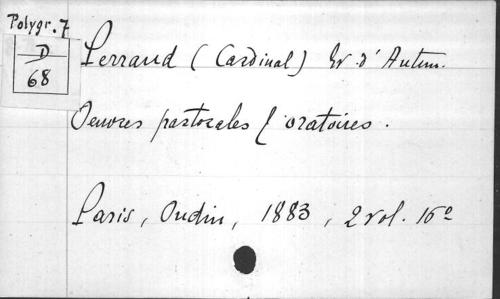 Polygr. 7
D
68
Perraud (Cardinal) Ev. d'Autun.
Oeuvres pastorales & oratoires.
Paris, Oudin, 1883, 2 vol. 16º